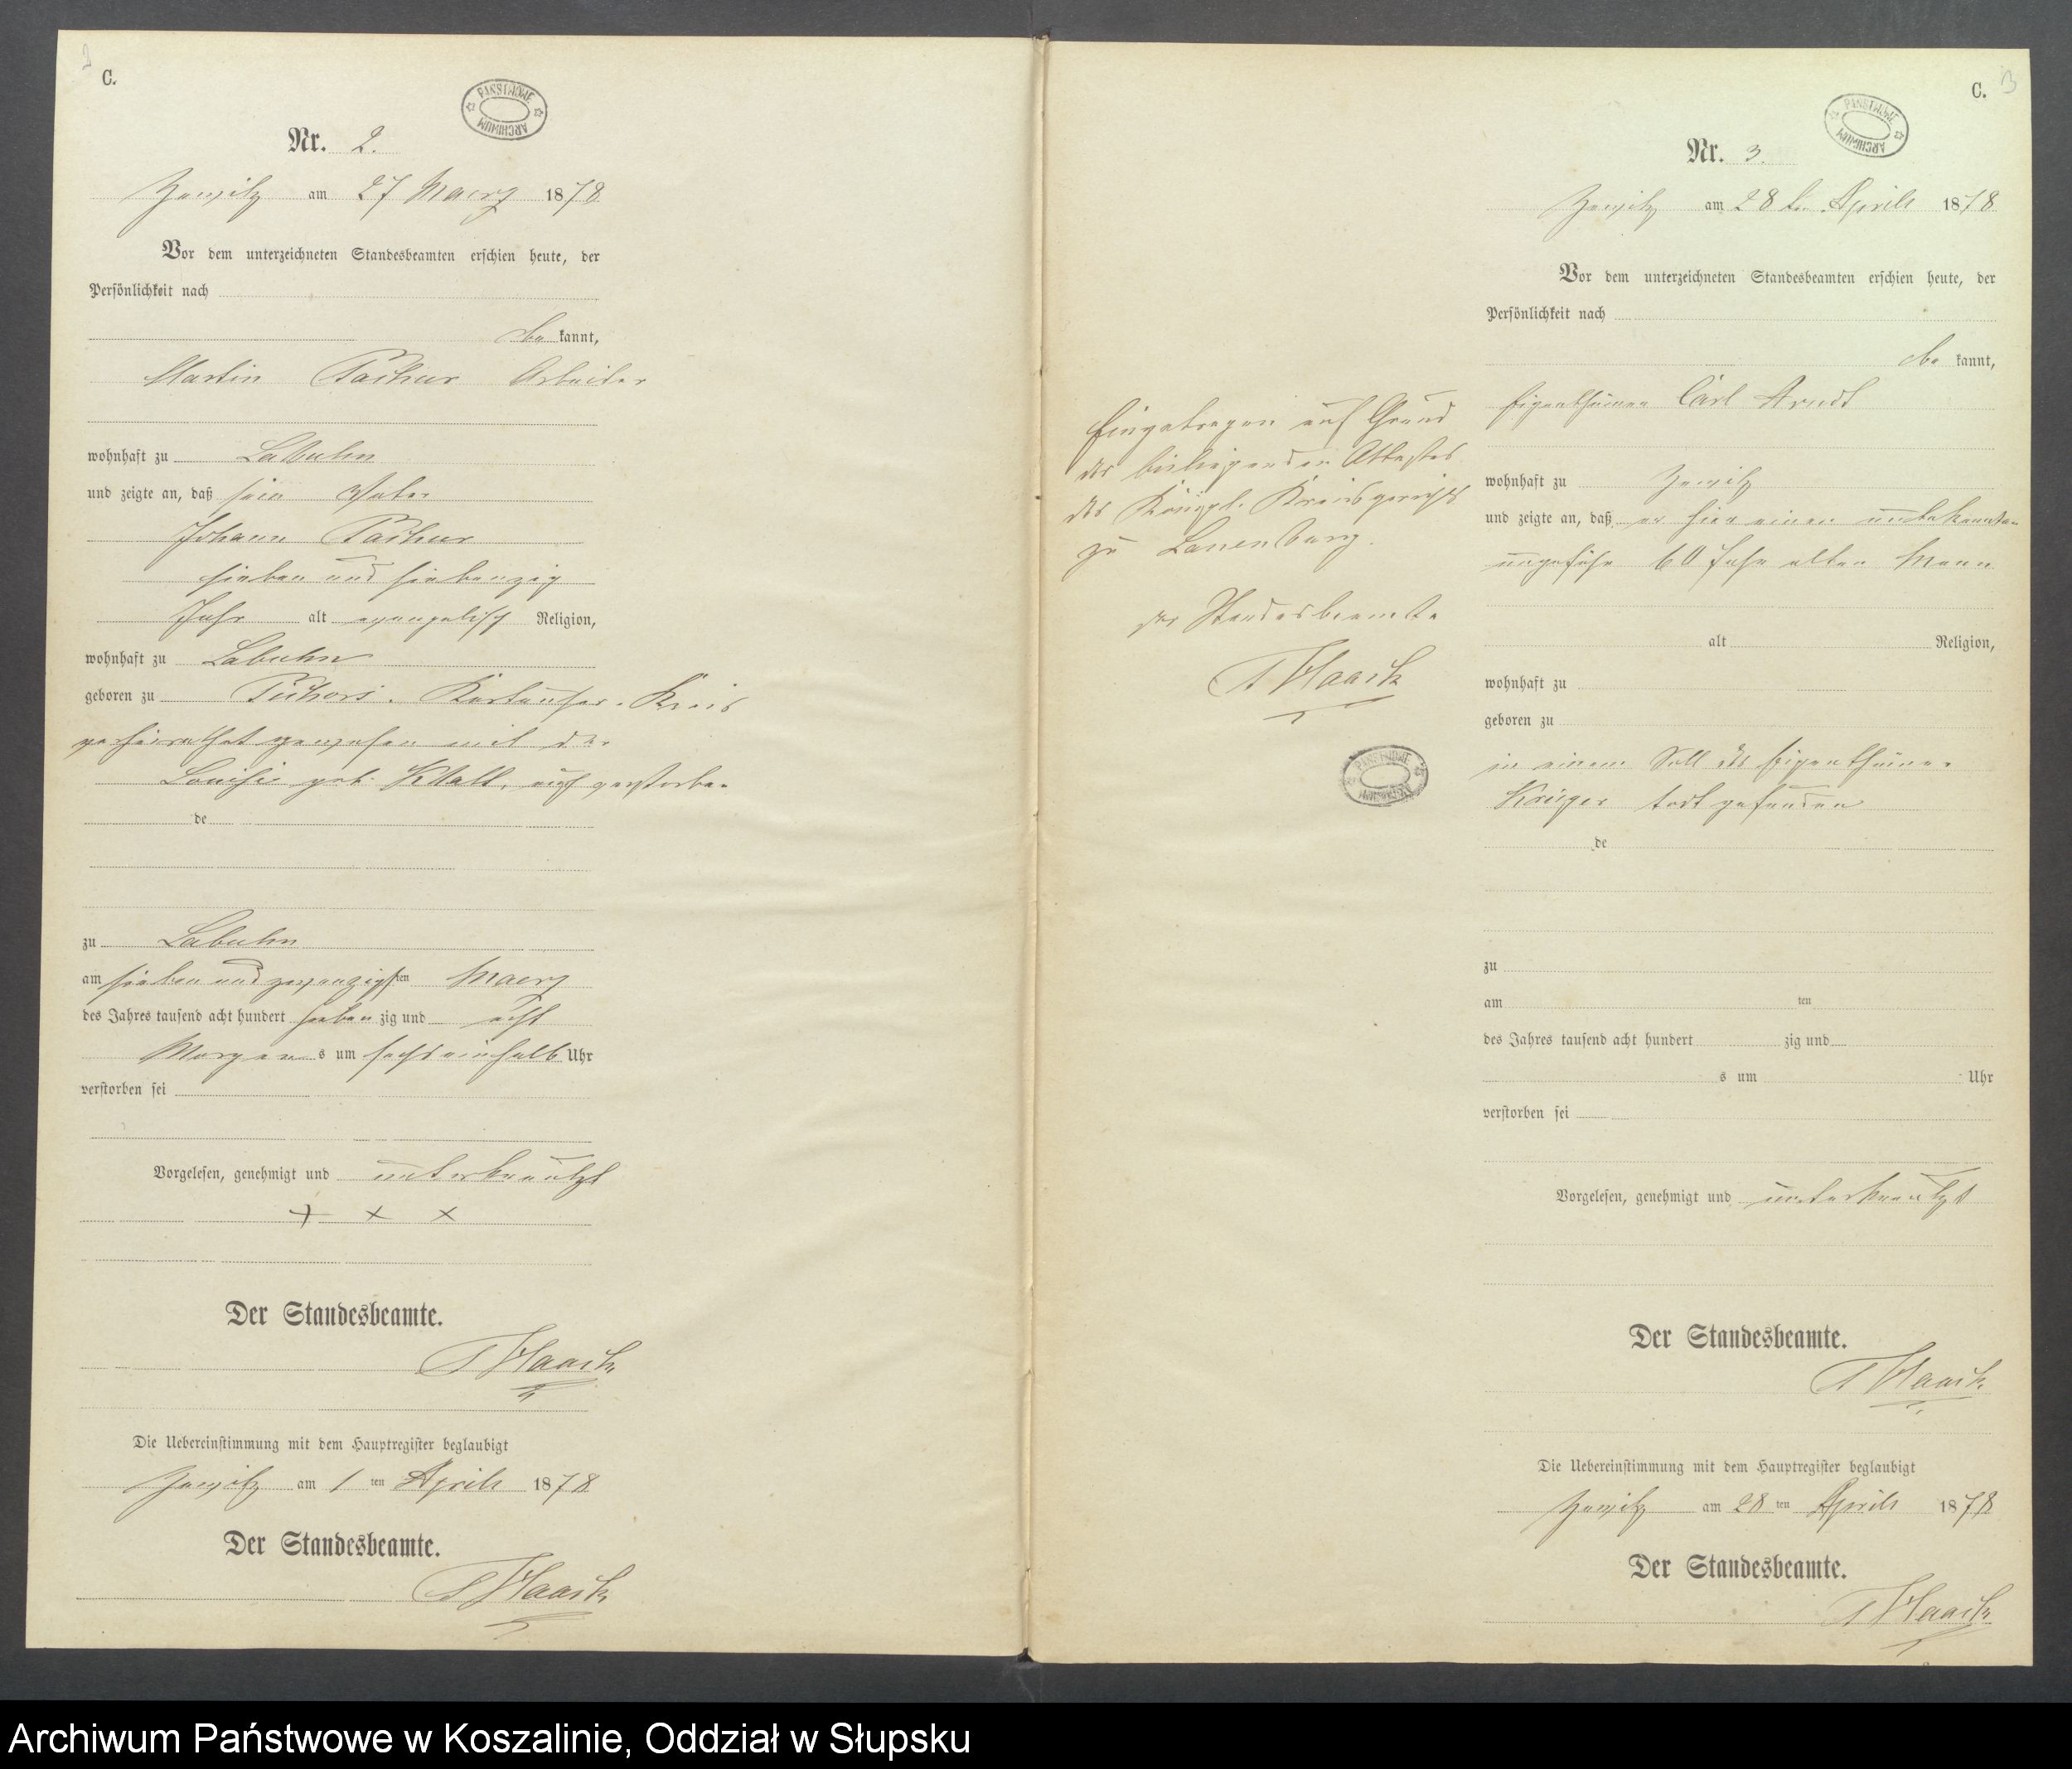 2
C.
PAŃSTWOWE ARCHIWUM
Nr. 2.
Zewitz am 27 Maerz 1878
Vor dem unterzeichneten Standesbeamten erschien heute, der
Persönlichkeit nach
be kannt,
Martin Pachur Arbeiter
wohnhaft zu Labuhn
und zeigte an, daß sein Vater
Johann Pachur
sieben und siebenzig
Jahr alt evangelisch Religion,
wohnhaft zu Labuhn
geboren zu Karthauser Kreis
verheirathet gewesen mit der
Louise geb. Klatt, auch verstorben
de
zu Labuhn
am sieben und zwanzigsten Maerz
des Jahres tausend acht hundert sieben zig und acht
Morgen s um sechseinhalb Uhr
verstorben sei
Vorgelesen, genehmigt und unterkreutzt
+ × ×
Der Standesbeamte.
Haack
Die Uebereinstimmung mit dem Hauptregister beglaubigt
Zewitz am 1 ten Aprils 1878
Der Standesbeamte.
Haack
3
C.
PAŃSTWOWE ARCHIWUM
Nr. 3.
Zewitz am 28 ten Aprils 1878
Vor dem unterzeichneten Standesbeamten erschien heute, der
Persönlichkeit nach
be kannt,
Eigenthümer Carl Arndt
wohnhaft zu Zewitz
und zeigte an, daß er hier einen unbekannten
ungefähr 60 Jahr alten Mann
alt Religion,
wohnhaft zu
geboren zu
in einem Soll des Eigenthümer
Krüger todt gefunden
de
zu
am ten
des Jahres tausend acht hundert zig und
s um Uhr
verstorben sei
Vorgelesen, genehmigt und unterkreutzt
Der Standesbeamte.
Haack
Die Uebereinstimmung mit dem Hauptregister beglaubigt
Zewitz am 28 ten Aprils 1878
Der Standesbeamte.
Haack
Eingetragen auf Grund
des beiliegenden Attestes
des Königl. Kreisgerichts
zu Lauenburg.
der Standesbeamte
Haack
PAŃSTWOWE ARCHIWUM
Archiwum Państwowe w Koszalinie, Oddział w Słupsku